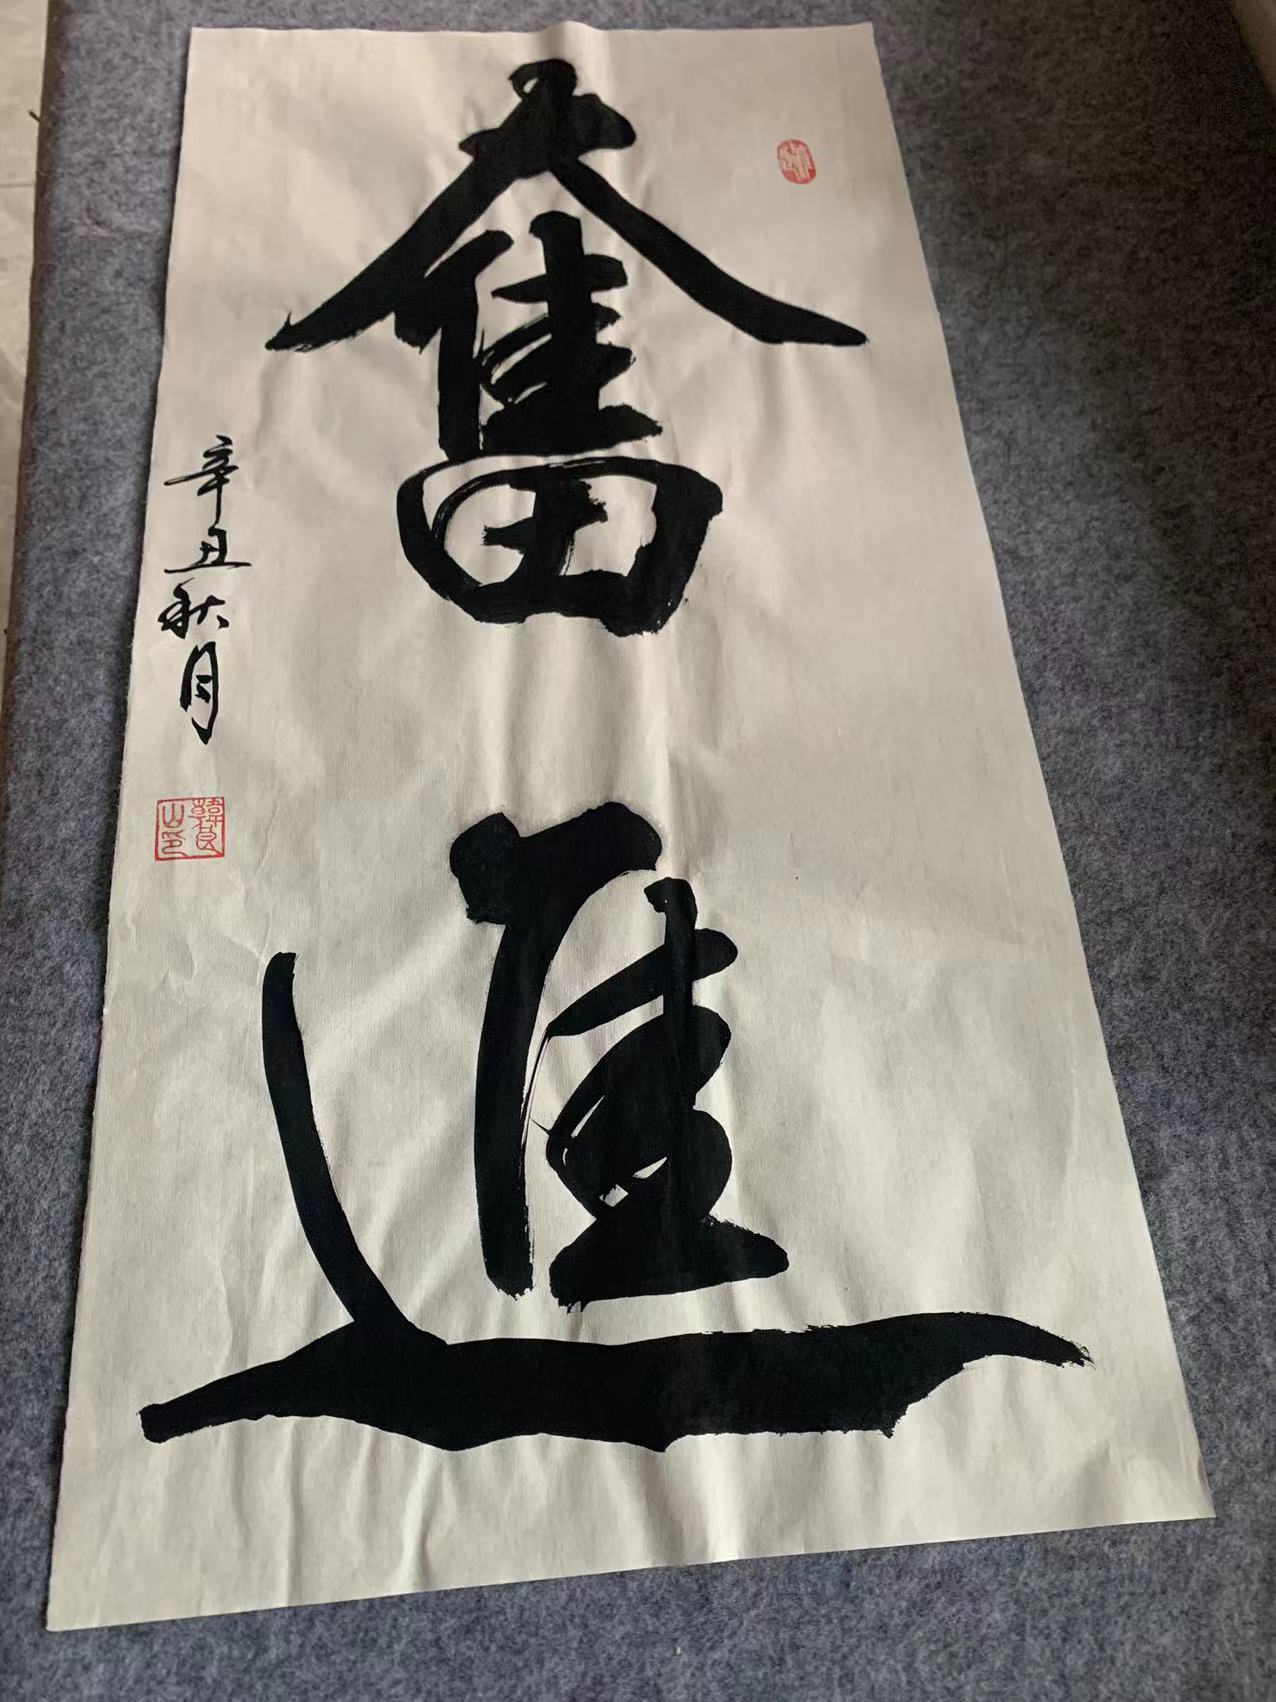 奮進
辛丑秋月
韓良山印